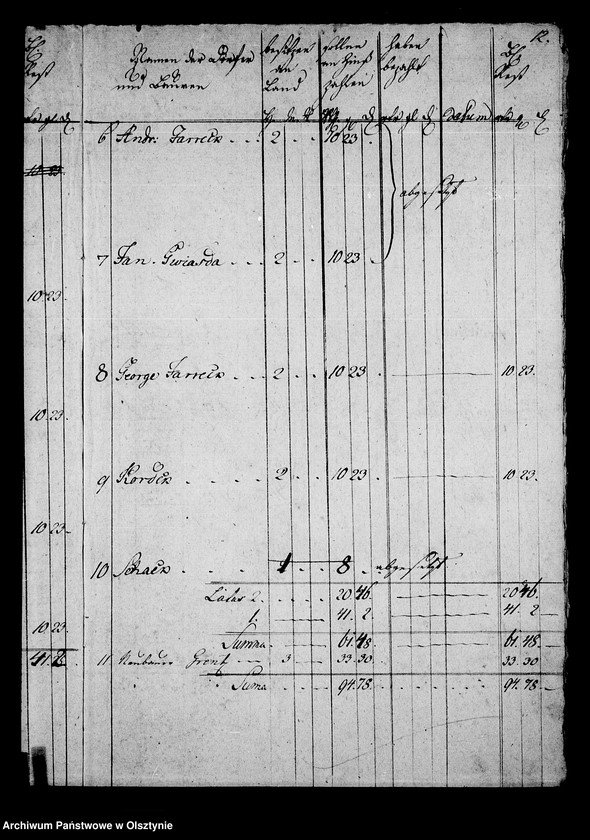 12.
Namen der Dörfer und Bauren
besitzen an Land
sollen an Zinß zahlen
haben bezahlt
Rest
Datum
6 Andr: Jarreck . . . 2 . . 10 23
abgesetzt
7 Jan . Gwiasda . . . 2 . . 10 23 .
8 George Jarreck . . . 2 . . 10 23 . 10 23.
9 Kordck . . . . 2 . . 10 23 . 10 23.
10 . . . . 1 . . 8 . abgesetzt
Latus 2. . . . . 20. 46. 20 46.
1. 41. 2 41. 2
Summa 61. 48 61. 48
11 Neubauer Grent 3 33. 30. 33. 30
Suma 94. 78. 94. 78
Rest
10 23.
10 23.
10 23.
10 23.
10 23
41. 2
Archiwum Państwowe w Olsztynie